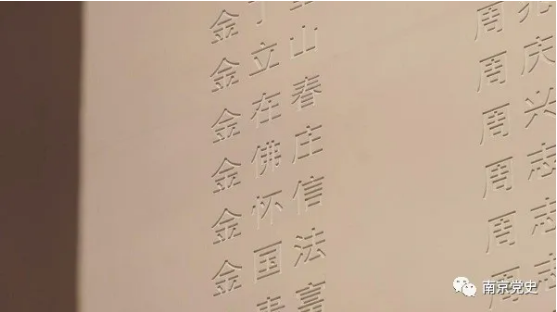 金
金立山
金在春
金佛庄
金怀信
金国法
富
周
周庆
周兴
周志
周志
周志
南京党史